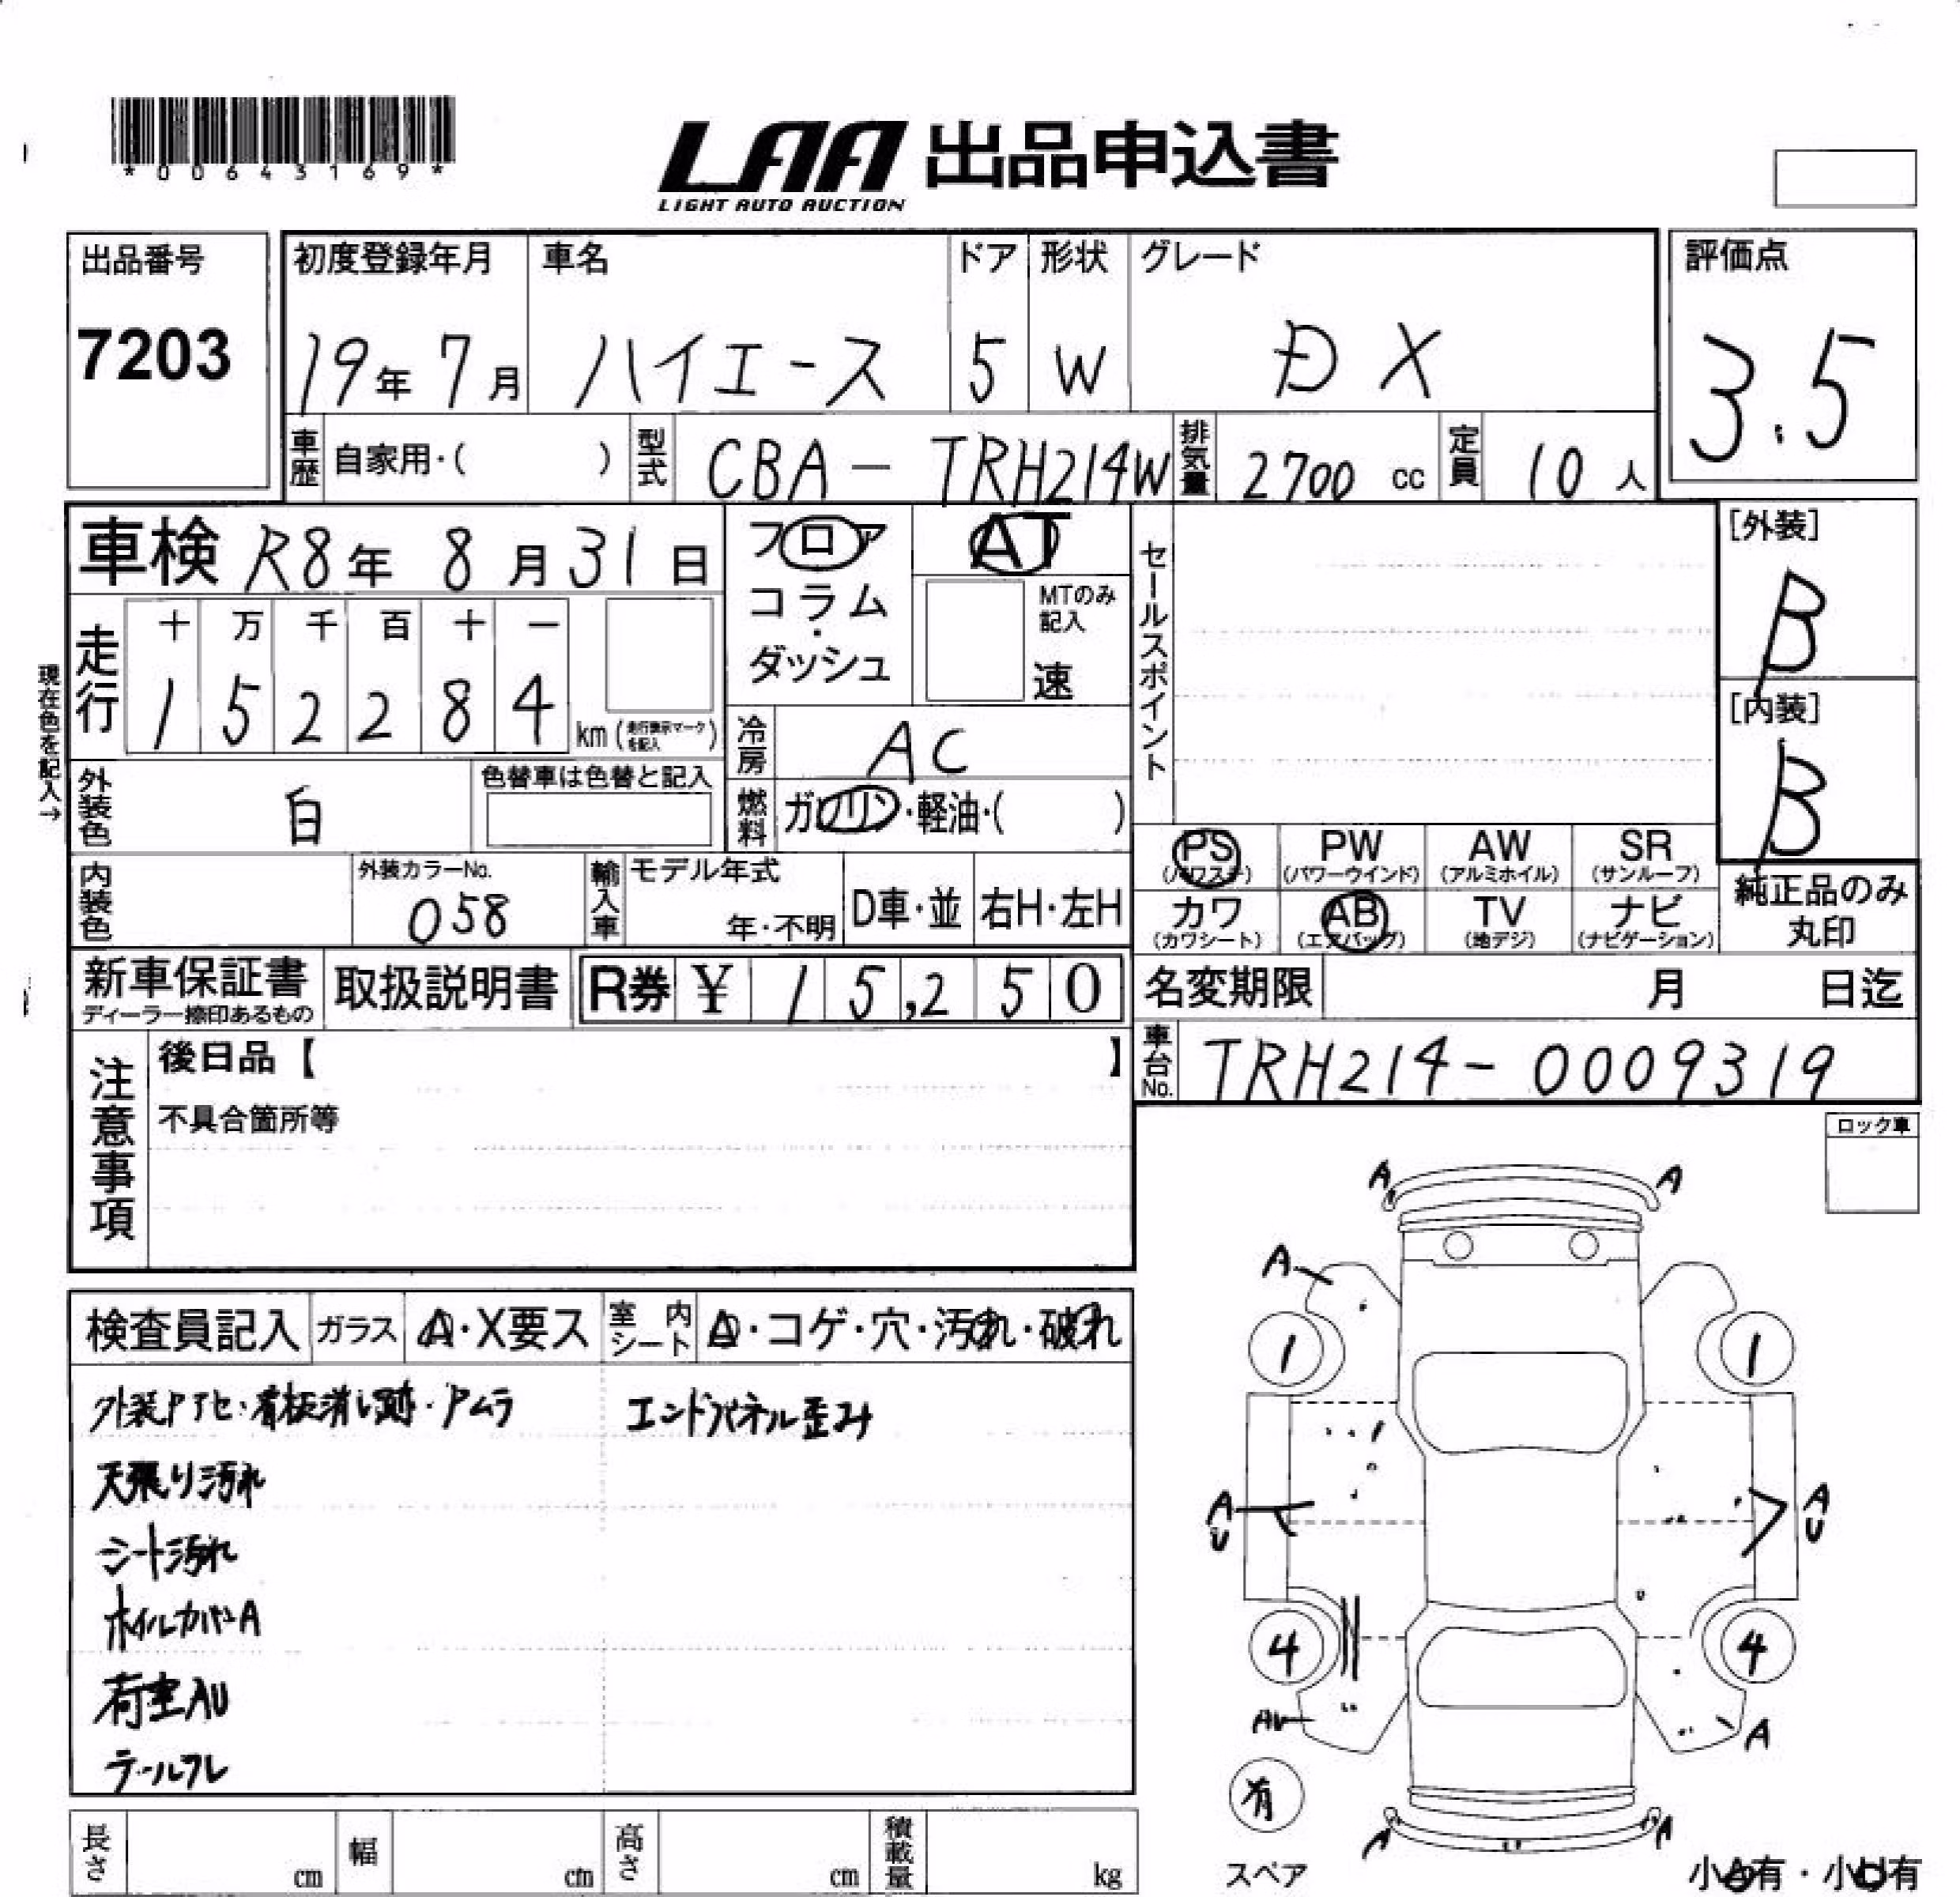 *00643169*
LAA 出品申込書
LIGHT AUTO AUCTION
出品番号
7203
初度登録年月 車名 ドア 形状 グレード
19年 7月 ハイエース 5 W DX
評価点
3.5
車歴 自家用・( ) 型式 CBA-TRH214W 排気量 2700 cc 定員 10 人
車検 R8年 8月31日
フロア コラム・ダッシュ
AT
MTのみ記入
速
セールスポイント
[外装]
B
[内装]
B
現在色を記入→
走行 十 万 千 百 十 一
1 5 2 2 8 4 km (走行表示マークを記入)
冷房 AC
外装色 白 色替車は色替と記入
燃料 ガソリン・軽油・( )
PS (パワステ) PW (パワーウインド) AW (アルミホイル) SR (サンルーフ)
カワ (カワシート) AB (エアバッグ) TV (地デジ) ナビ (ナビゲーション)
純正品のみ丸印
内装色 外装カラーNo. 058 輸入車 モデル年式 年・不明 D車・並 右H・左H
新車保証書 ディーラー捺印あるもの 取扱説明書 R券 ¥ 15,250
名変期限 月 日迄
車台No. TRH214-0009319
注意事項
後日品【 】
不具合箇所等
ロック車
検査員記入 ガラス A・X要ス 室内シート A・コゲ・穴・汚れ・破れ
看板消し跡・Pムラ エンドパネル歪み
天張り汚れ
シート汚れ
ホイルカバーA
荷室AU
テールワレ
A A
A
1 1
A U A U
4 4
AU A
有
スペア
A A
小A有・小U有
長さ cm 幅 cm 高さ cm 積載量 kg